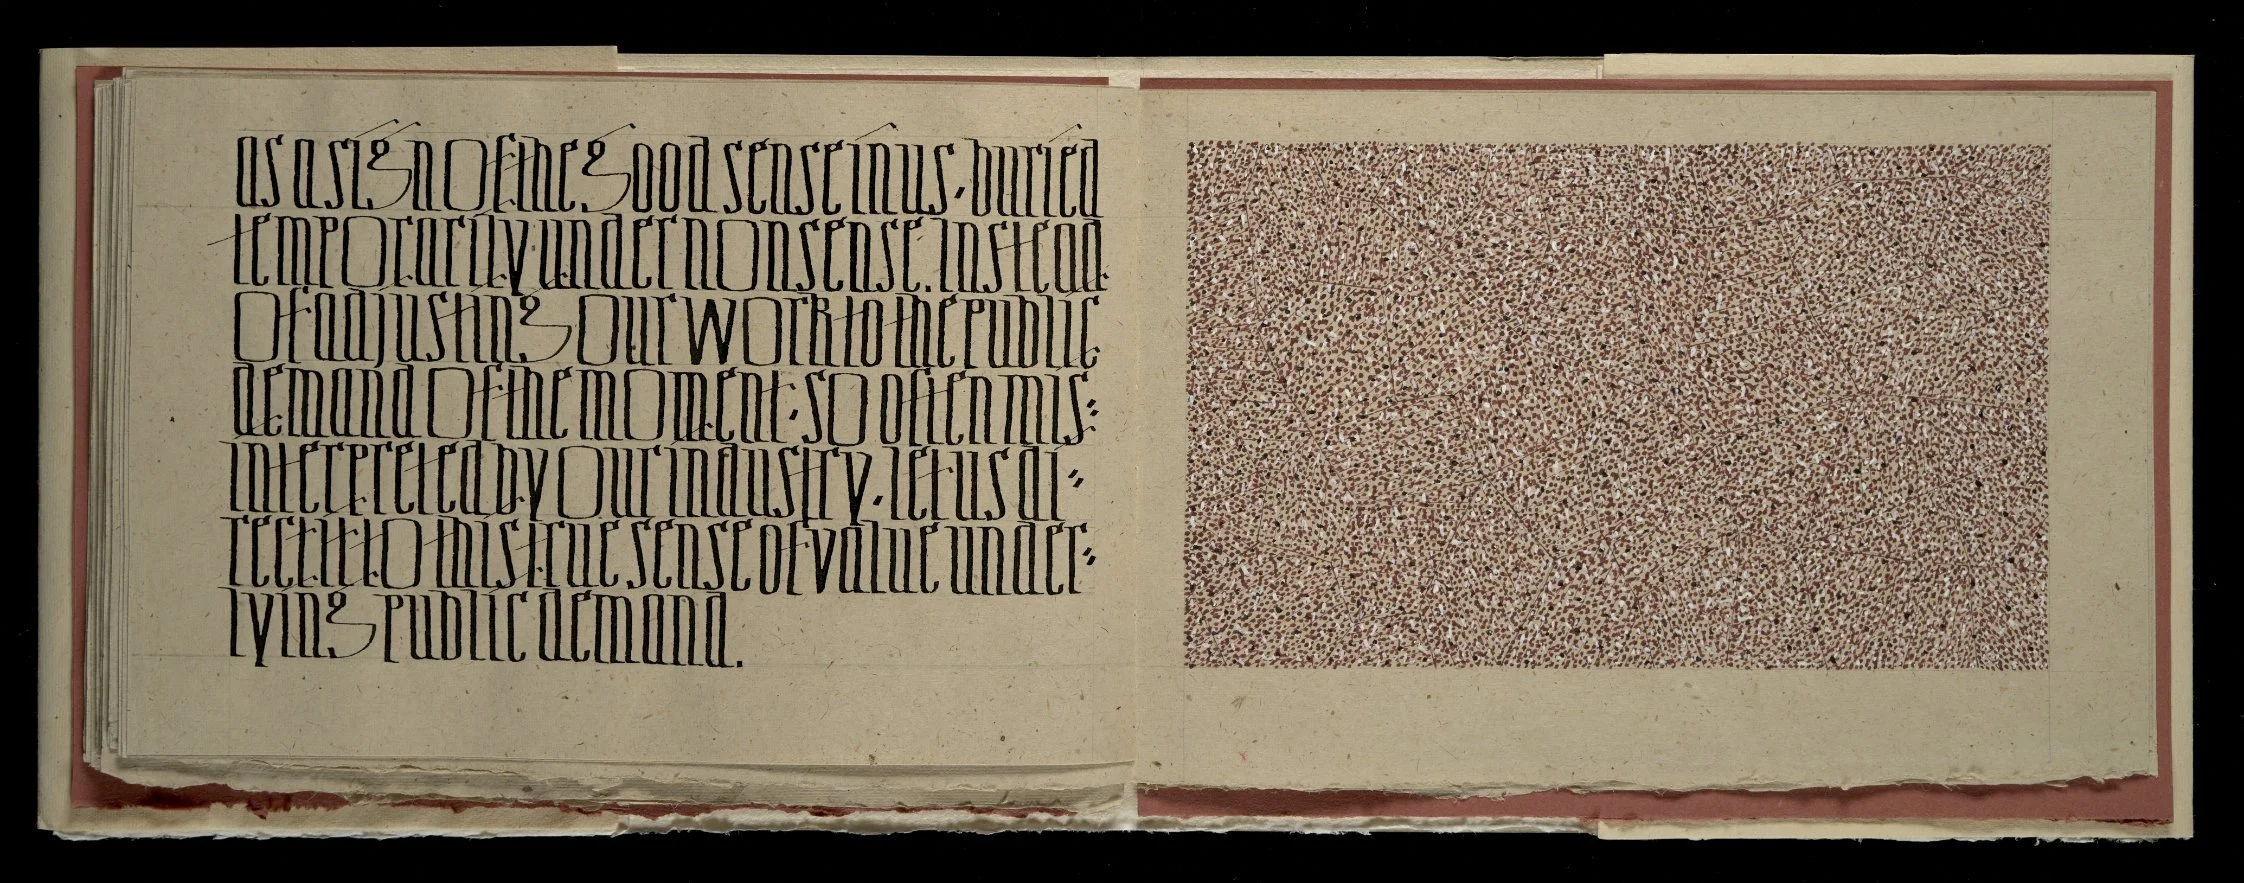 as a sign of the good sense in us, buried
temporarily under nonsense. Instead
of adjusting our work to the public
demand of the moment, so often mis-
interpreted by our industry, let us di-
rect it to this true sense of value under-
lying public demand.